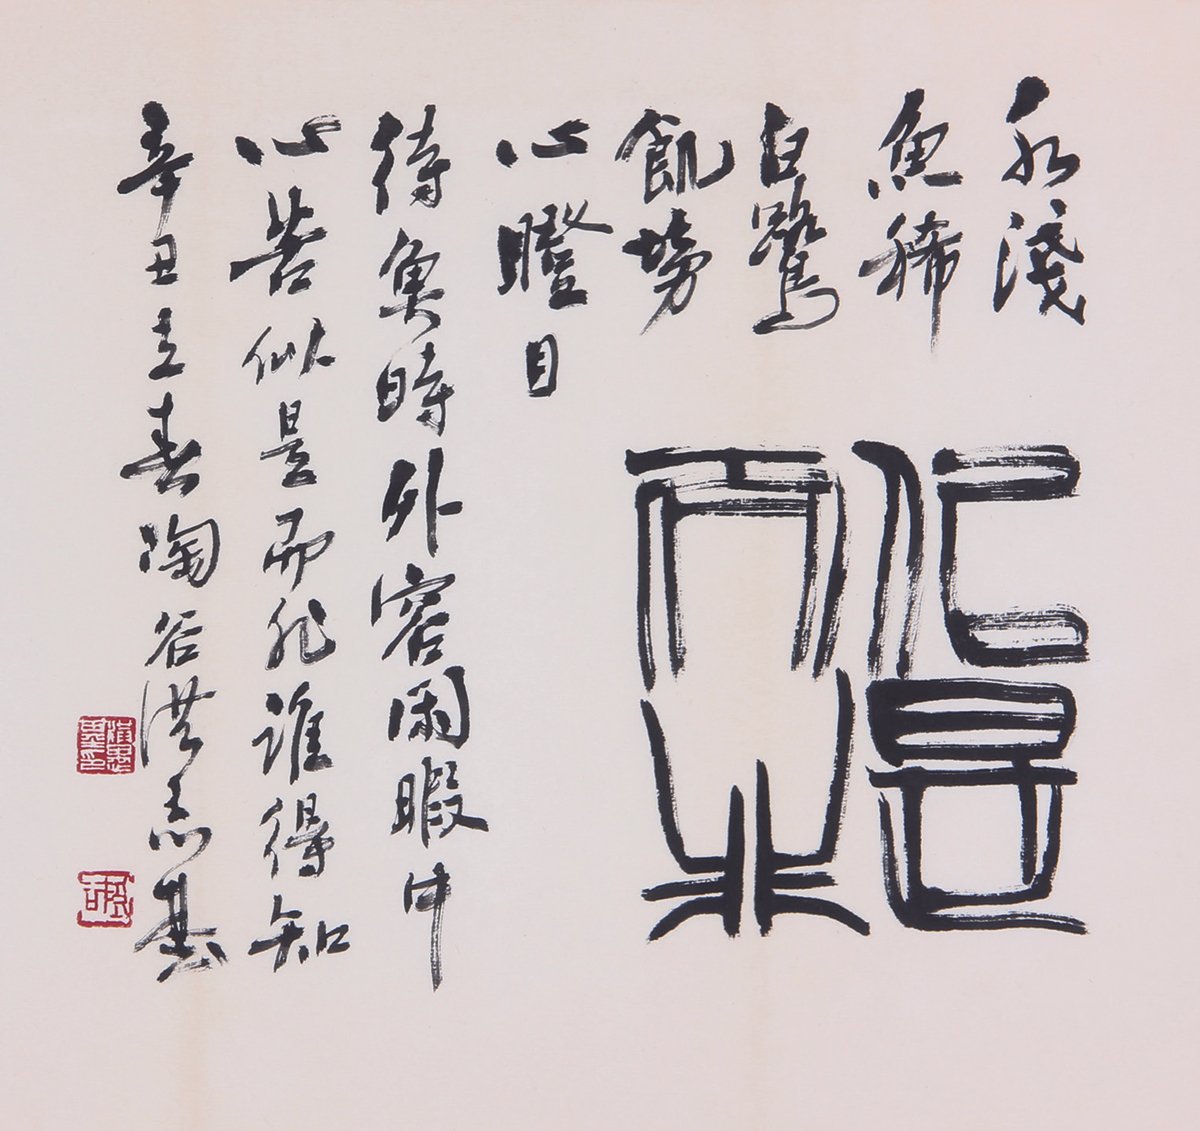 似是
而非
水淺
魚稀
白鷺
飢勞
心瞪目
待魚時外容閑暇中
心苦似是而非誰得知
辛丑立春陶谷洪基